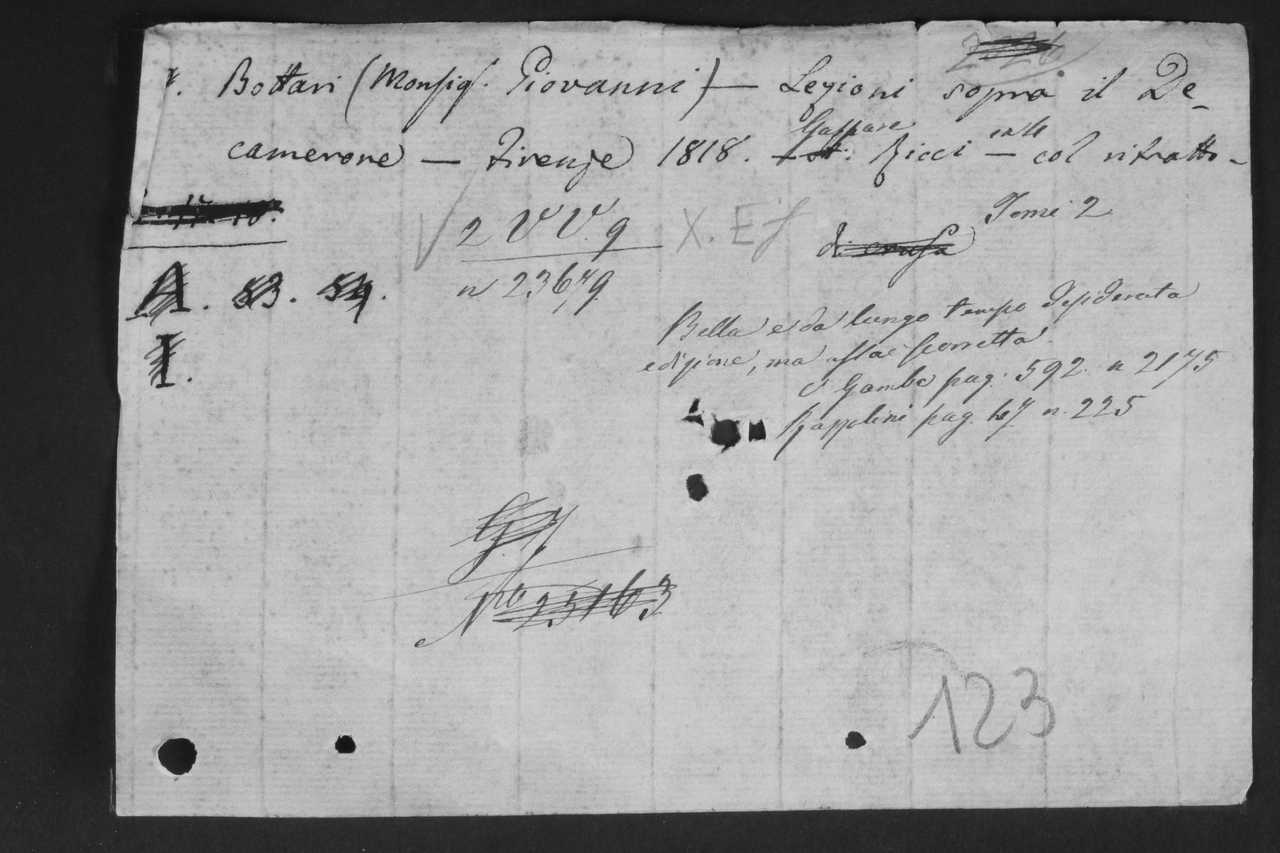 Bottari (Monsig. Giovanni) — Lezioni sopra il De-
camerone — Firenze 1818. Gaspare Ricci — col ritratto -
2 V V. 9 X. E
Tomi 2
A. 53. 54.
n 23679
I.
Bella e da lungo tempo desiderata
edizione, ma assai scorretta
V Gamba pag. 592. n 2175
Razzolini pag. n. 225
G. 7
Nro 25163
123